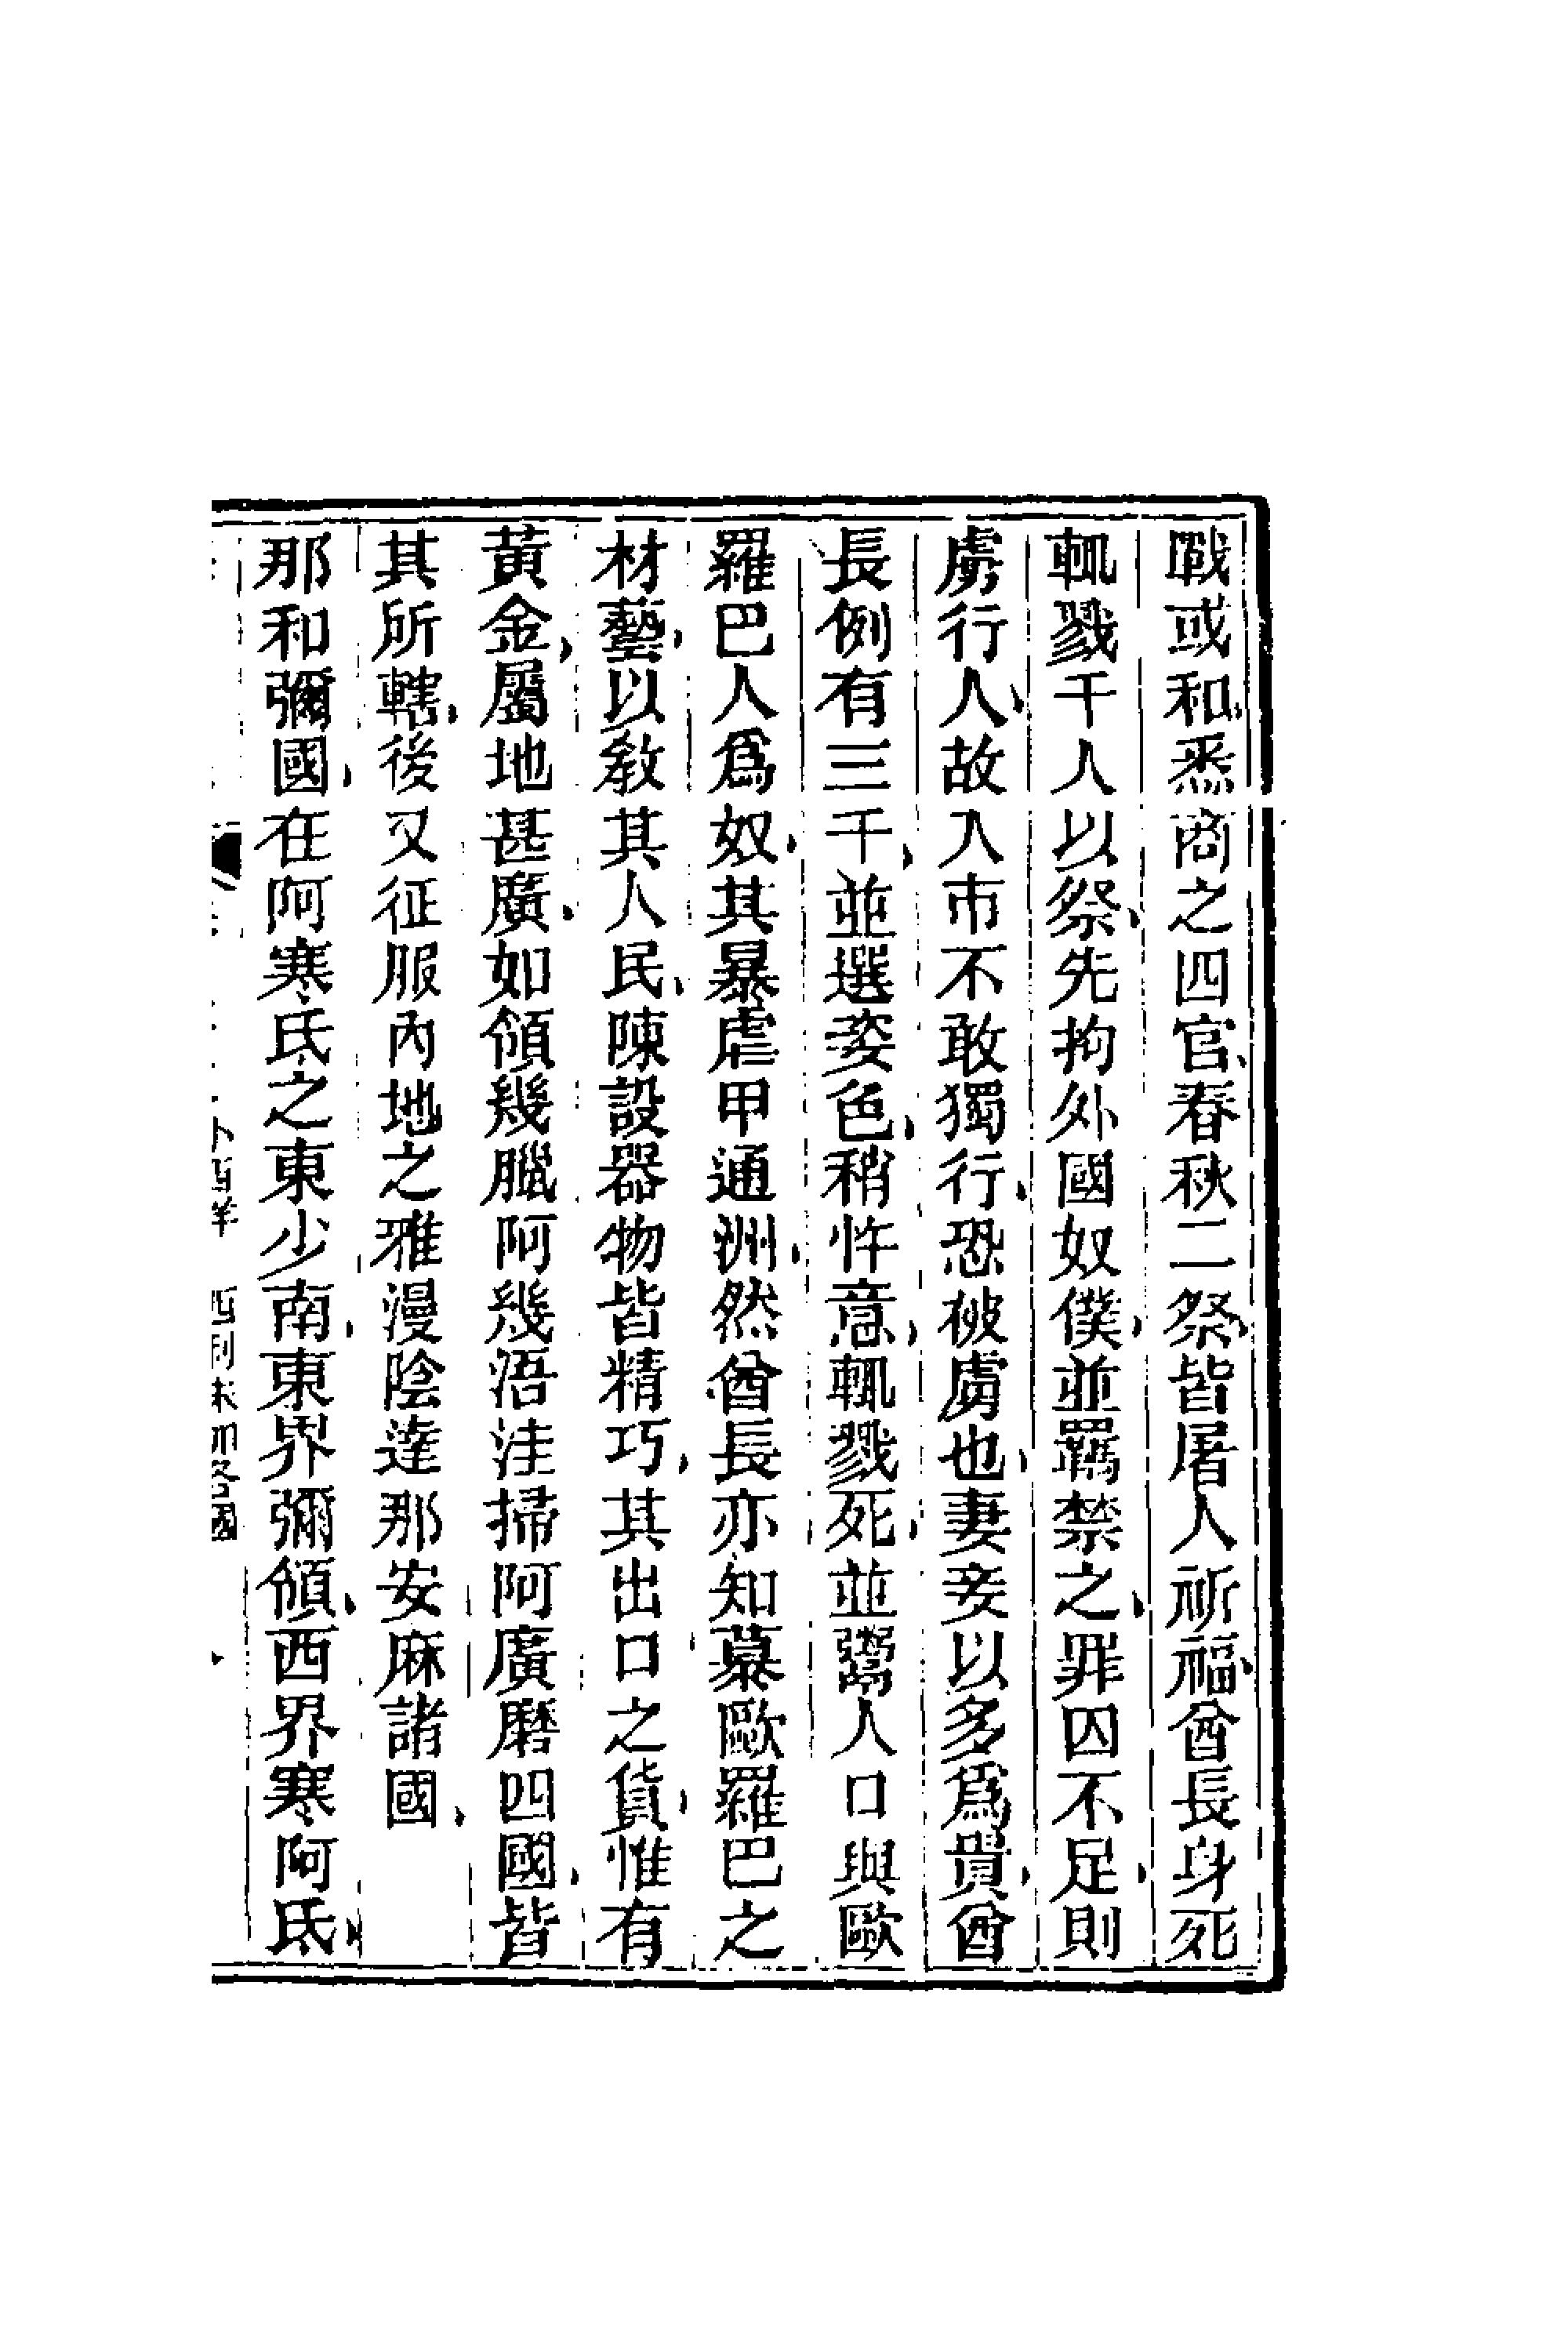 戰或和悉商之四官春秋二祭皆屠人祈福酋長身死
輒戮千人以祭先拘外國奴僕並羈禁之罪囚不足則
虜行人故入市不敢獨行恐被虜也妻妾以多爲貴酋
長例有三千並選姿色稍忤意輒戮死並鬻人口與歐
羅巴人爲奴其暴虐甲通洲然酋長亦知慕歐羅巴之
材藝以教其人民陳設器物皆精巧其出口之貨惟有
黃金屬地甚廣如領幾臘阿幾浯洼掃阿廣磨四國皆
其所轄後又征服內地之雅漫陰達那安麻諸國
那和彌國在阿寒氐之東少南東界彌領西界寒阿氐
外西洋 西利未加各國